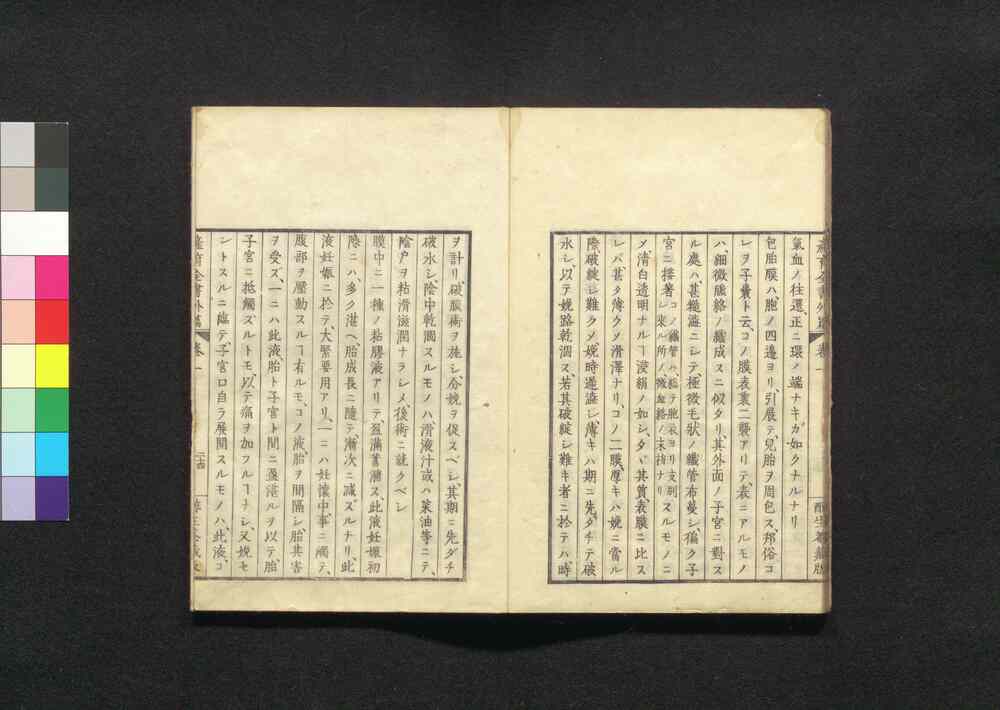 氣血ノ往還、正ニ環ノ端ナキガ如クナルナリ
包胎膜ハ、胞ノ四邊ヨリ、引展テ、兒胎ヲ周包ス、邦俗コ
レヲ子囊ト云、コノ膜表裏二襲アリテ、表ニアルモノ
ハ細微脈絡ノ織成スニ似タリ、其外面ノ子宮ニ對ス
ル處ハ、甚糙澁ニシテ、極微毛狀ノ纎管布蔓シ、徧ク子
宮ニ摟著
コノ纎管ハ、胞衣ヨリ支別
シ來ル所ノ、微血絡ノ末抄ナリ
スルモノニ
メ、清白透明ナルヿ浸絹ノ如シ、
其質表膜ニ比ス
レバ甚タ薄クメ滑澤ナリ、コノ二膜、厚キハ娩ニ當ル
際、破綻シ難クメ娩時遲澁シ、薄キハ期ニ先ダチテ破
水シ、以テ娩路乾涸ス、若其破綻シ難キ者ニ於テハ、時
ヲ計リ、破膜術ヲ施シ、分娩ヲ促スベシ、其期ニ先ダチ
破水シ、陰中乾涸スルモノハ、滑液汁或ハ菜油等ニテ、
陰戸ヲ粘滑滋潤ナラシメ、後術ニ就クベシ
膜中ニ一種ノ粘膠液アリテ、盈滿蓄瀦ス、此液妊娠初
際ニハ、多ク湛ヘ、胎成長ニ隨テ漸次ニ減ズルナリ、此
液妊娠ニ於テ、大緊要用アリ、一ニハ妊懷中事ニ觸テ、
腹部ヲ壓動スルヿ有ルモ、コノ液胎ヲ間隔シ、胎其害
ヲ受ズ、一ニハ此液、胎ト子宮ト間ニ盈湛ルヲ以テ、胎
子宮ニ抵觸ズルトモ、以テ痛ヲ加フルヿナシ、又娩セ
ントスルニ臨テ、子宮口自ラ展開スルモノハ、此液、コ
產育全書外篇
卷一
二十四